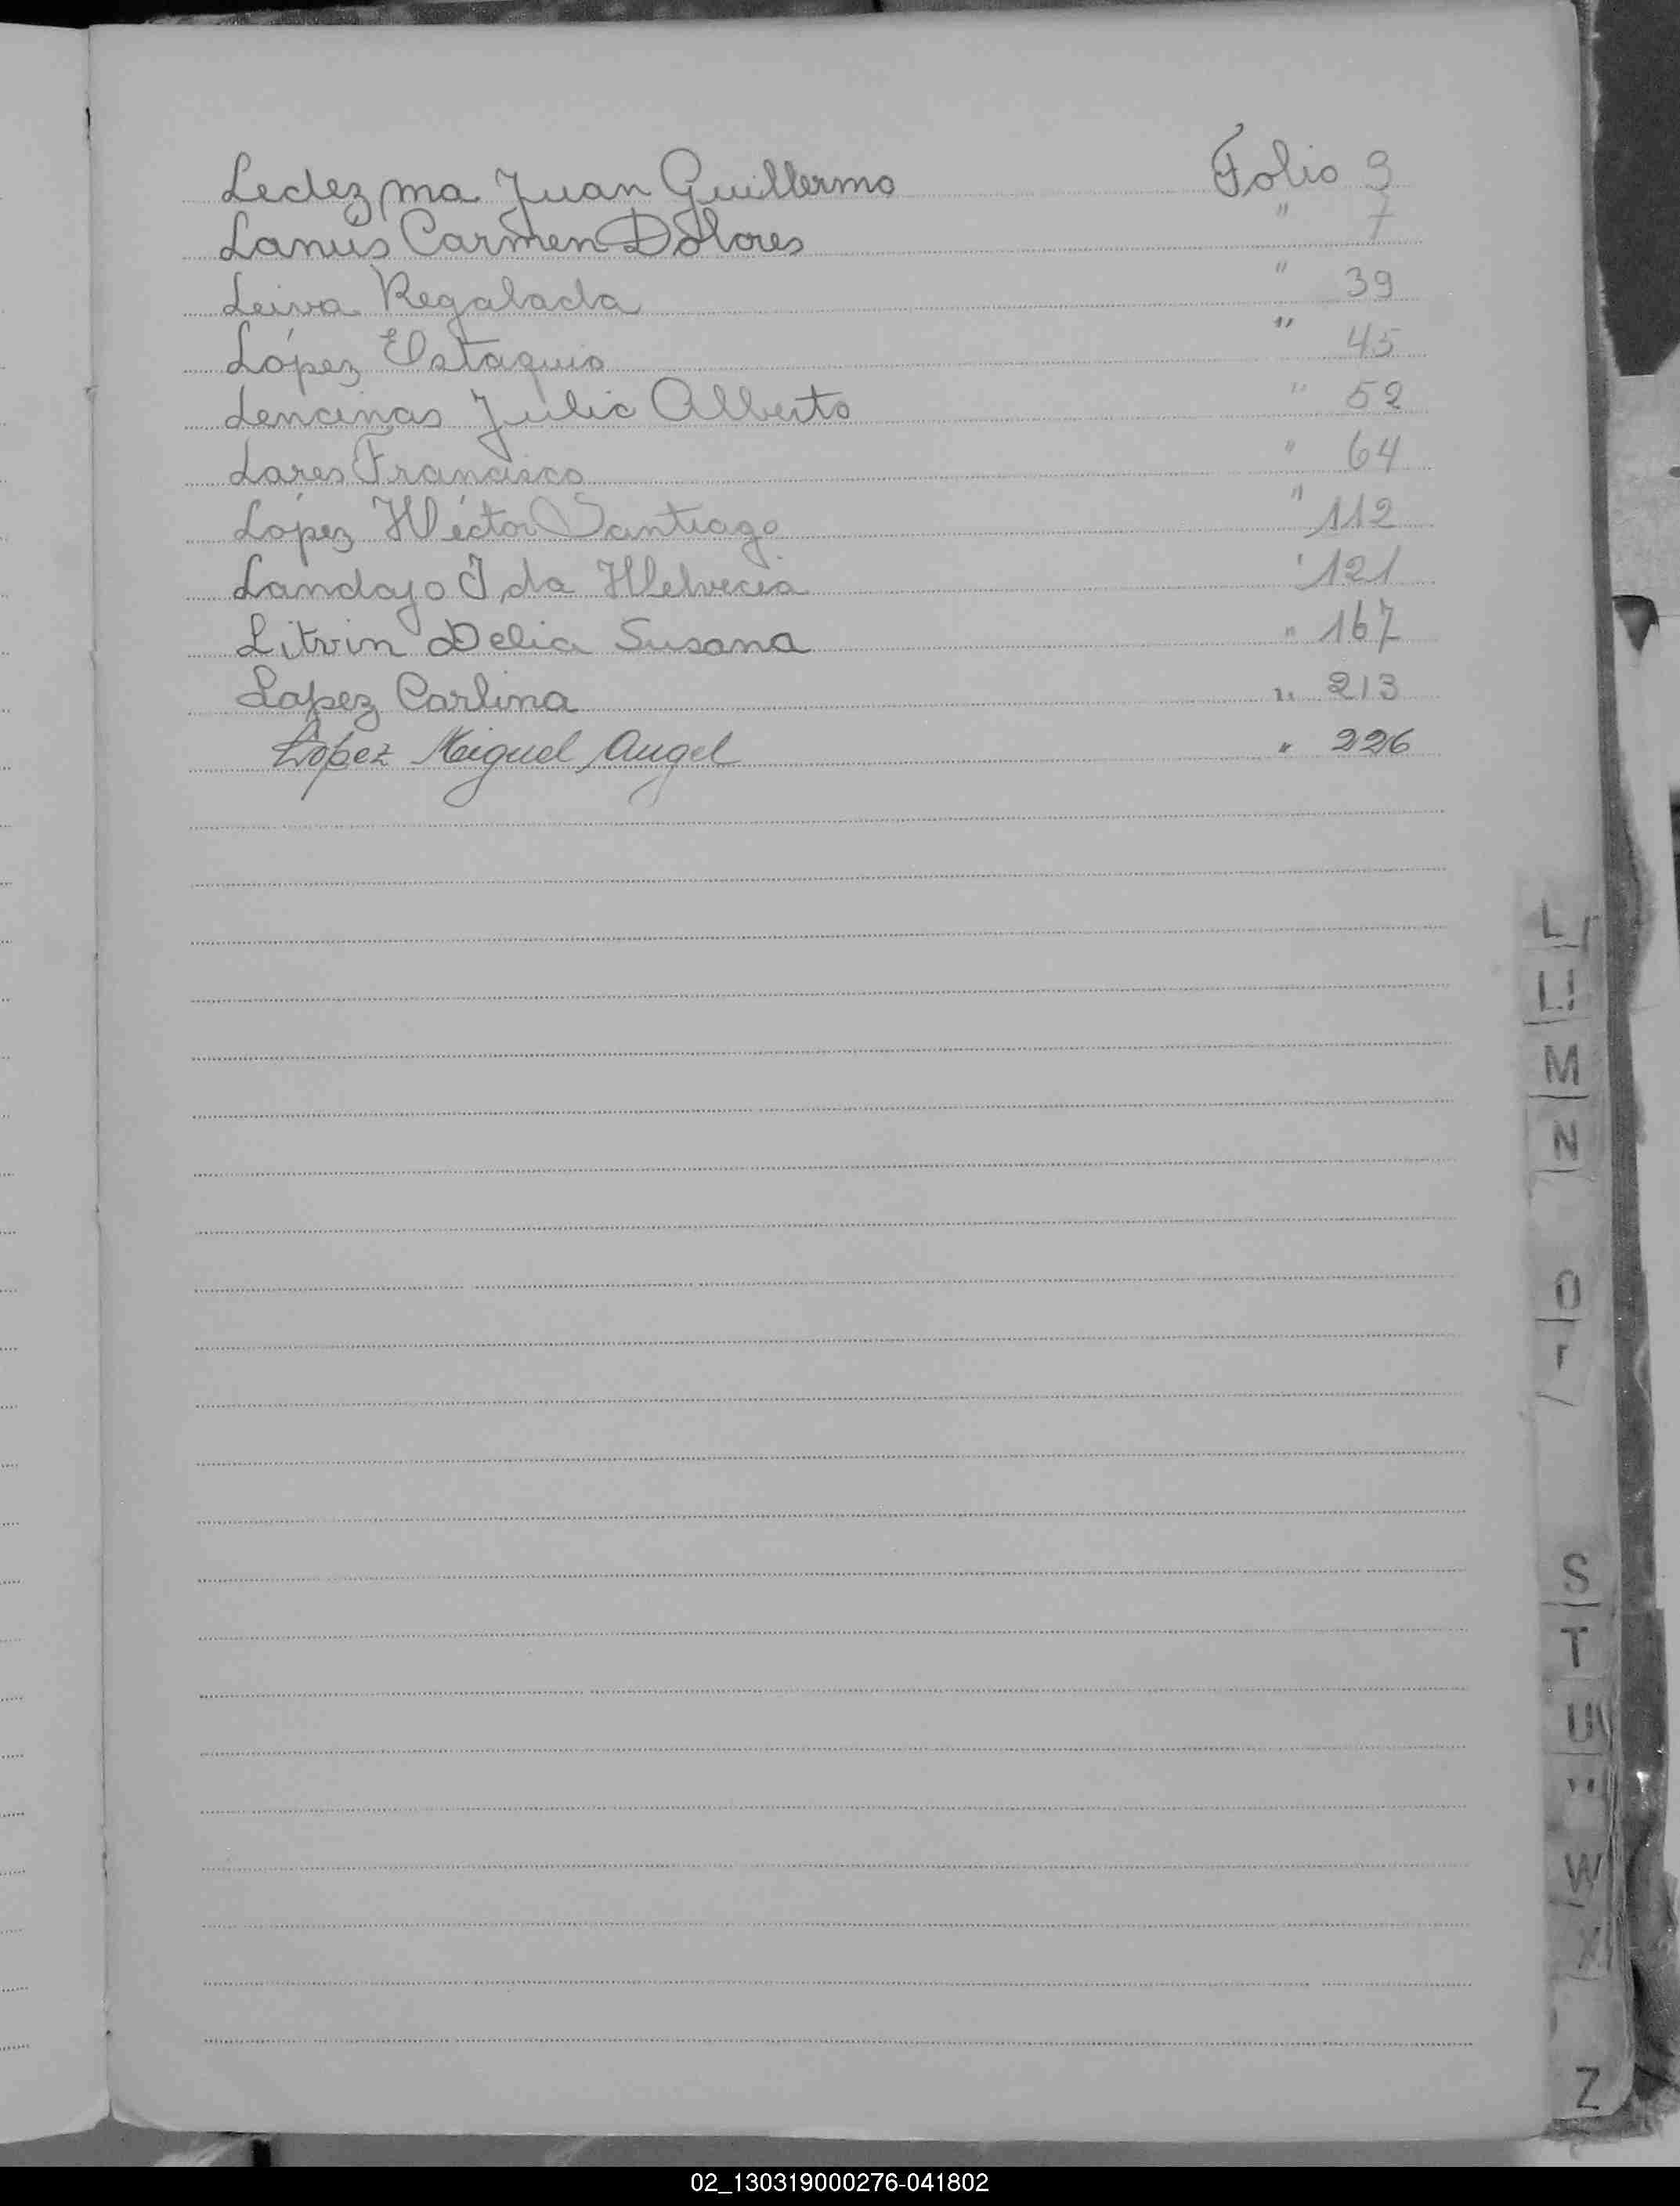 Ledezma Juan Guillermo Folio 3
Lanús Carmen Dolores " 7
Leiva Regalada " 39
López Estaquio " 45
Lencinas Julio Alberto " 52
Lares Francisco " 64
López Héctor Santiago " 112
Landajo Ida Helvecia " 121
Litvin Delia Susana " 167
Lopez Carlina " 213
López Miguel Angel " 226
L
Ll
M
N
O
S
T
U
W
X
Z
02_130319000276-041802